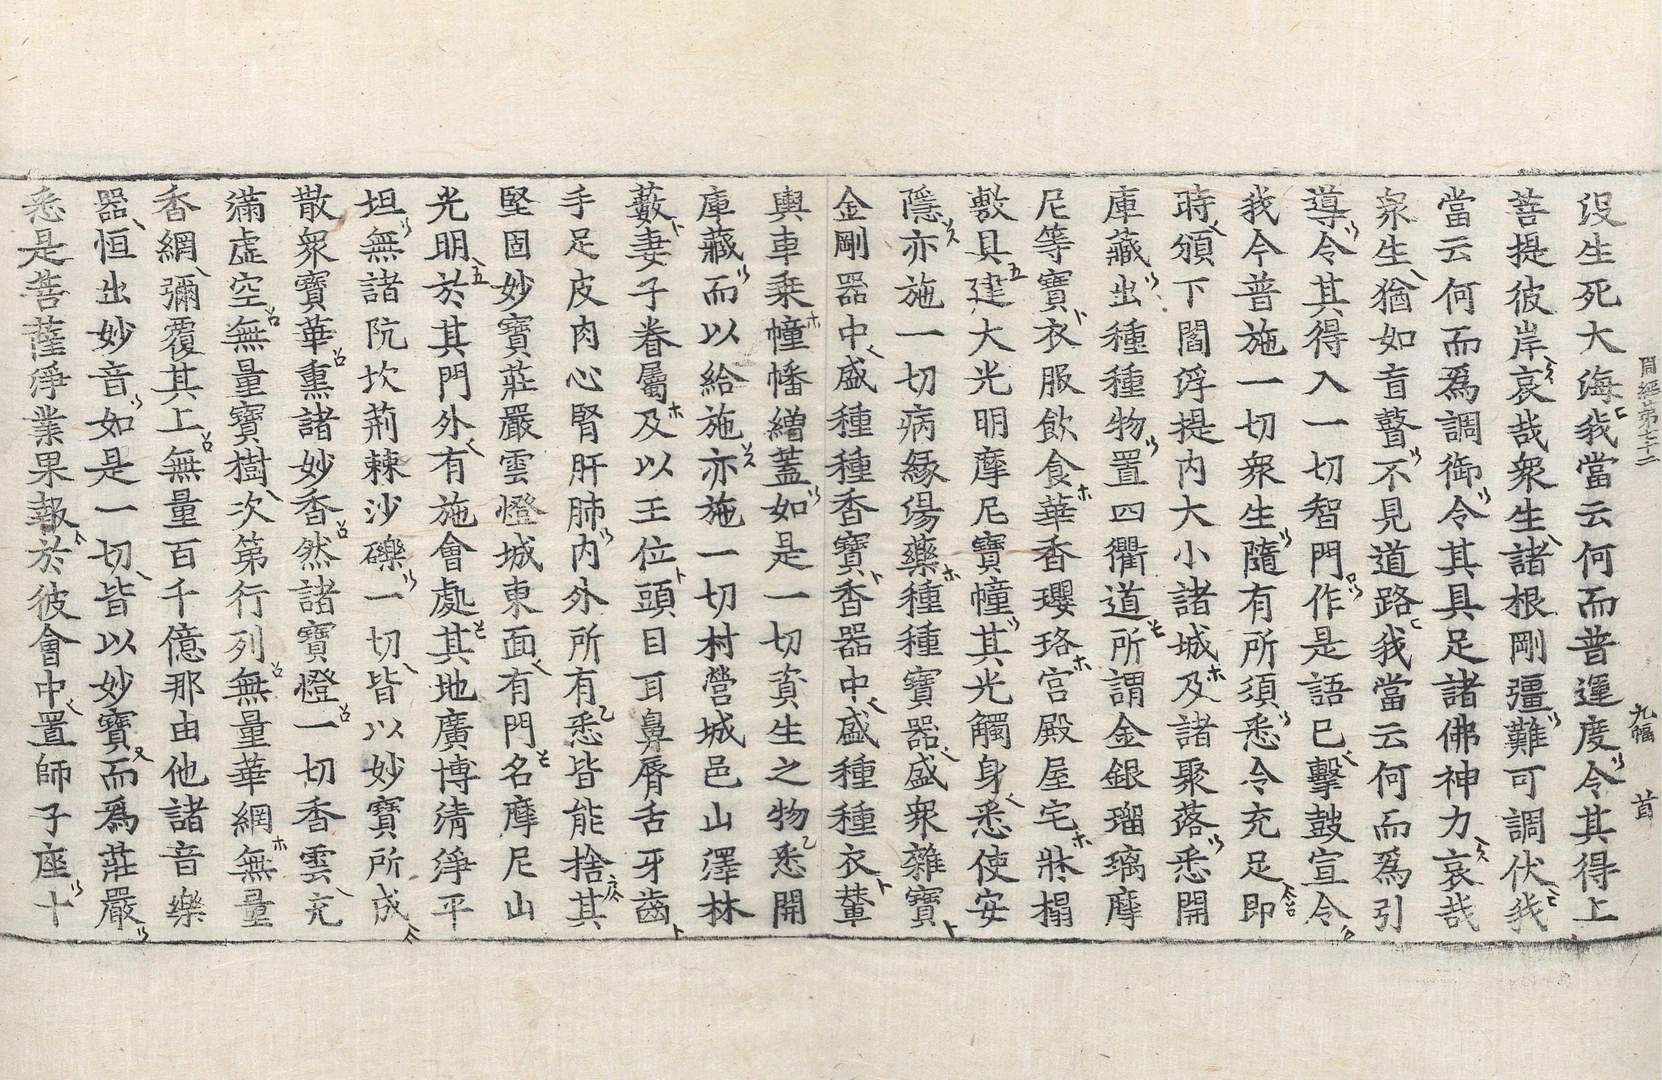 周經第七十二 九幅 首
没生死大海我當云何而普運度令其得上
菩提彼岸哀哉衆生諸根剛彊難可調伏我
當云何而爲調御令其具足諸佛神力哀哉
衆生猶如盲瞽不見道路我當云何而爲引
導令其得入一切智門作是語已擊鼓宣令
我今普施一切衆生隨有所須悉令充足即
時頒下閻浮提內大小諸城及諸聚落悉開
庫藏出種種物置四衢道所謂金銀瑠璃摩
尼等寶衣服飲食華香瓔珞宮殿屋宅牀榻
敷具建大光明摩尼寶幢其光觸身悉使安
隱亦施一切病緣湯藥種種寶器盛衆雜寶
金剛器中盛種種香寶香器中盛種種衣輦
輿車乘幢幡繒蓋如是一切資生之物悉開
庫藏而以給施亦施一切村營城邑山澤林
藪妻子眷屬及以王位頭目耳鼻脣舌牙齒
手足皮肉心腎肝肺內外所有悉皆能捨其
堅固妙寶莊嚴雲燈城東面有門名摩尼山
光明於其門外有施會處其地廣博清淨平
坦無諸阬坎荊棘沙礫一切皆以妙寶所成
散衆寶華熏諸妙香然諸寶燈一切香雲充
滿虛空無量寶樹次第行列無量華網無量
香網彌覆其上無量百千億那由他諸音樂
器恒出妙音如是一切皆以妙寶而爲莊嚴
悉是菩薩淨業果報於彼會中置師子座十